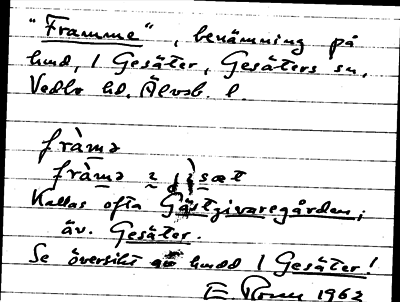 "Framme", benämning på
hmd, 1 Gesäter, Gesäters sn,
Vedbo hd, Älvsb. l.
fràmə
fràmə
Kallas ofta Gästgivaregården;
äv. Gesäter.
Se översikt hmdd 1 Gesäter!
E 1962